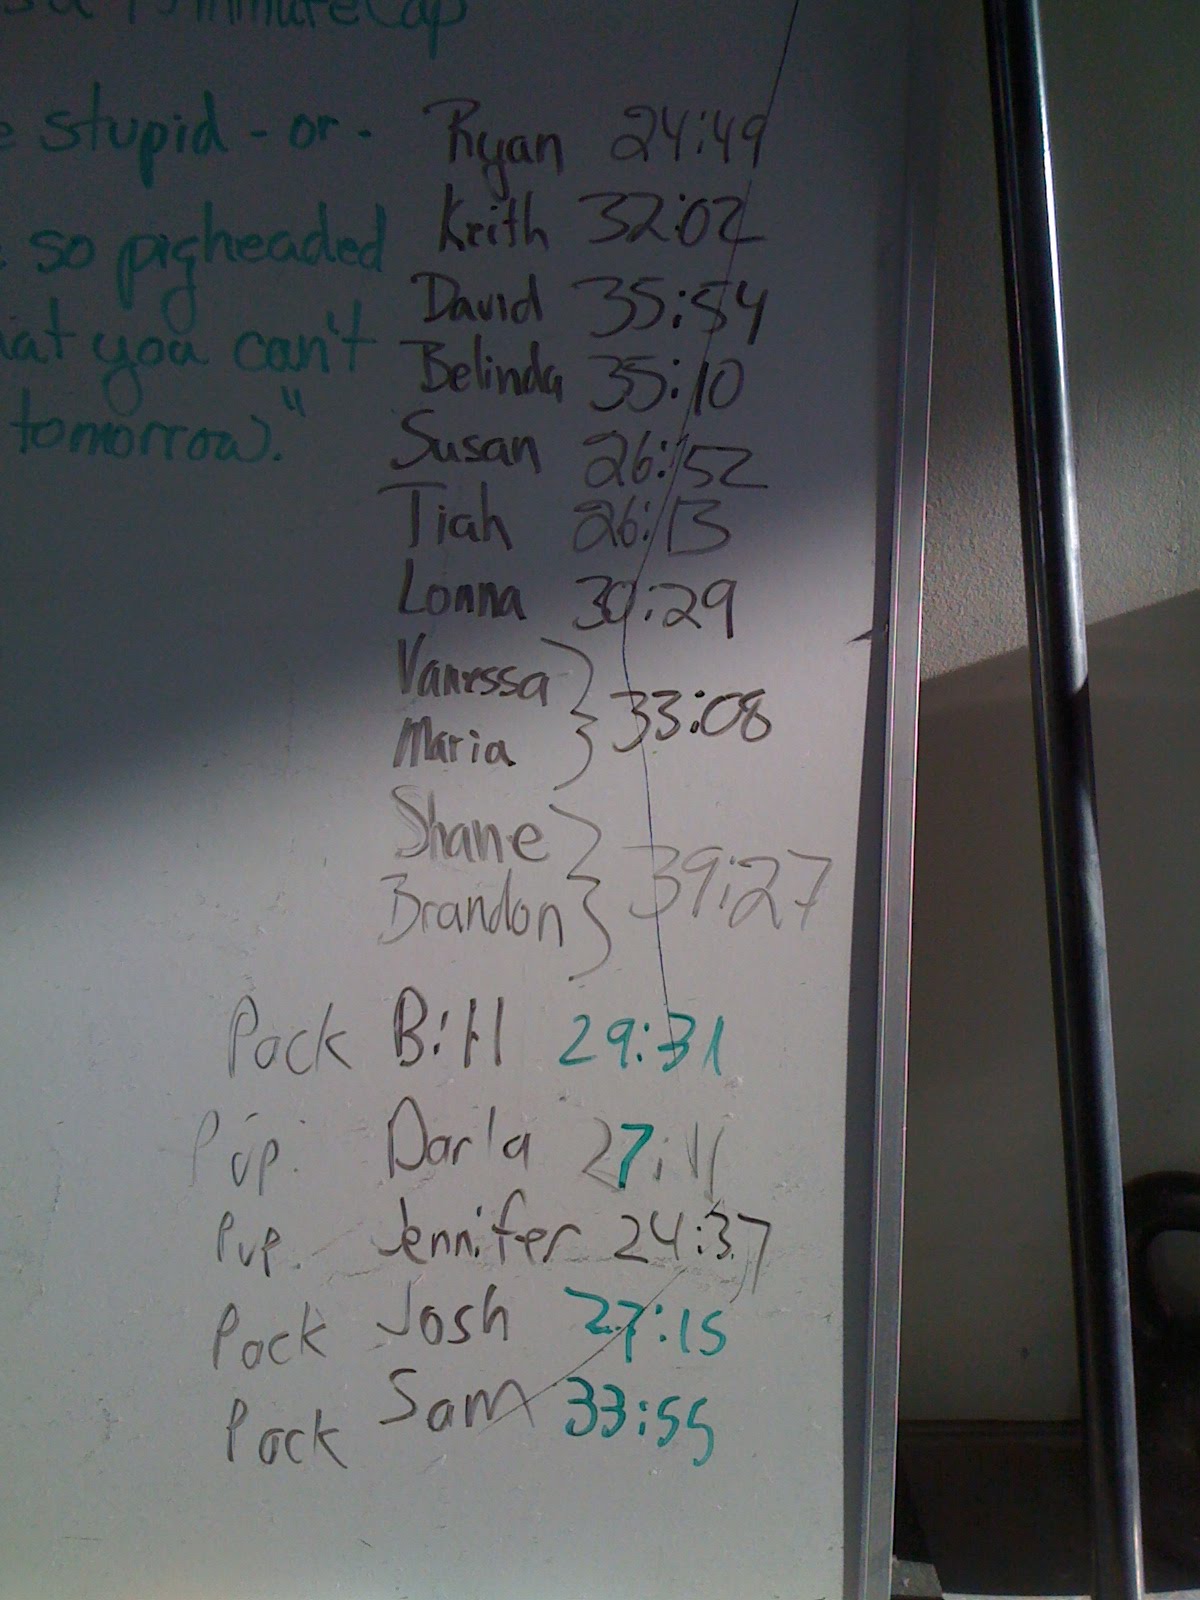 minute Cap
stupid - or -
so pigheaded
you can't
tomorrow."
Ryan 24:49
Keith 32:02
David 35:54
Belinda 35:10
Susan 26:52
Tiah 26:13
Lonna 30:29
Vanessa
Maria } 33:08
Shane
Brandon } 39:27
Pack Bill 29:31
Pup. Darla 27:11
Pup. Jennifer 24:37
Pack Josh 27:15
Pack Sam 33:55